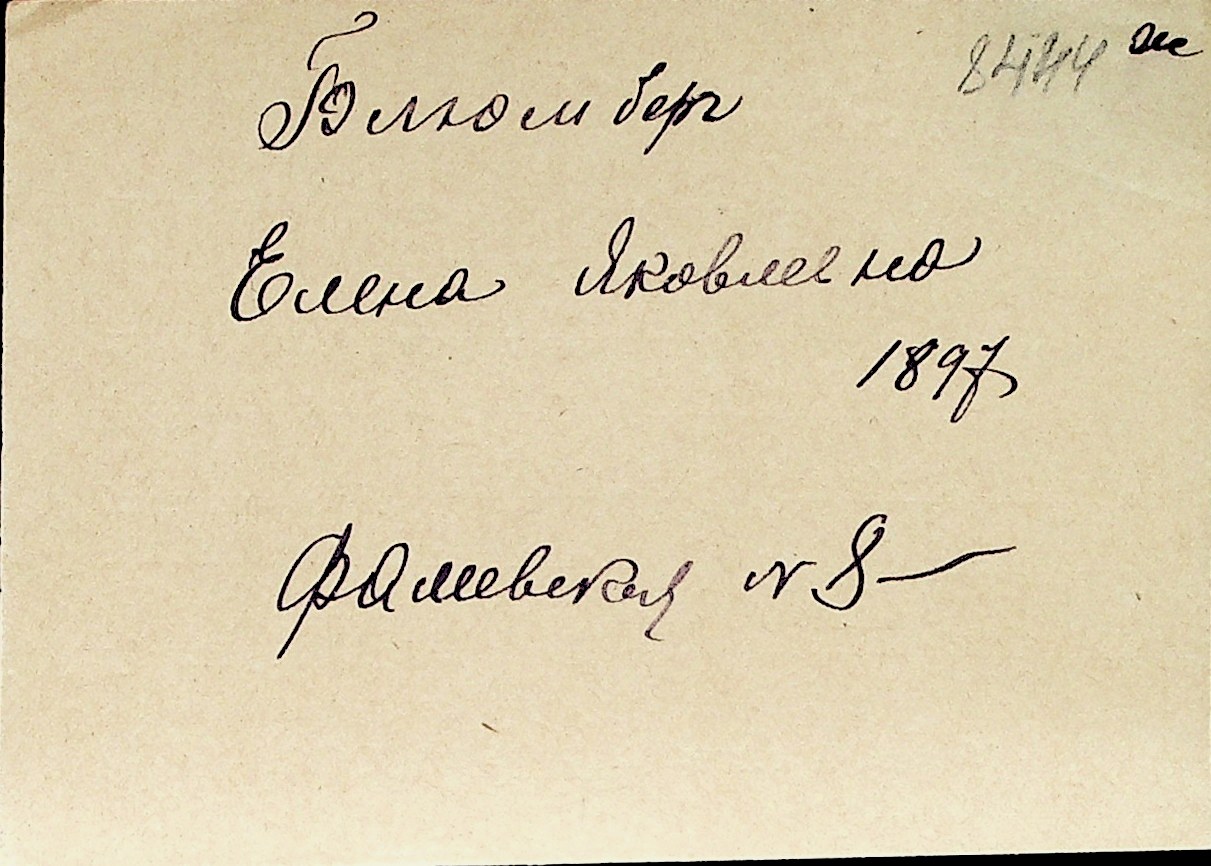 8444 ж
Блюмберг
Елена Яковлевна
1897
Фалеевская N 8